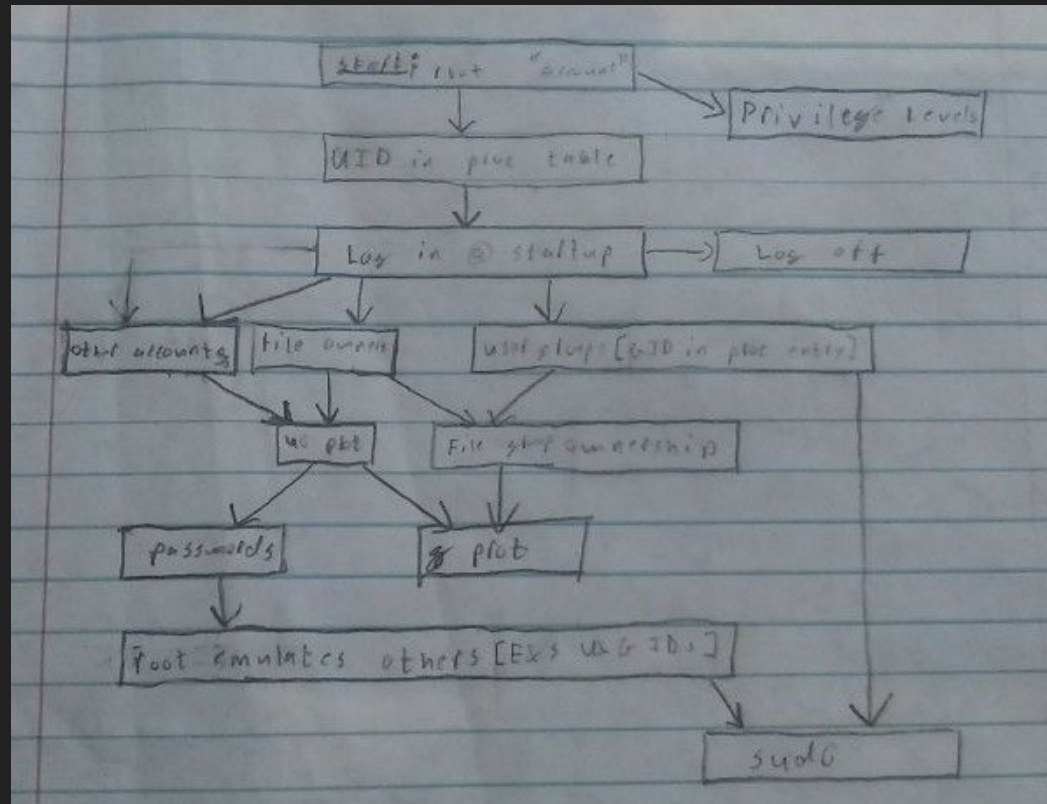 start: root "account"
Privilege Levels
UID in proc table
Log in @ startup
Log off
other accounts
file owners
user groups [GID in proc entry]
File group ownership
passwords
g prot
root emulates others [E&S U&G IDs]
sudo